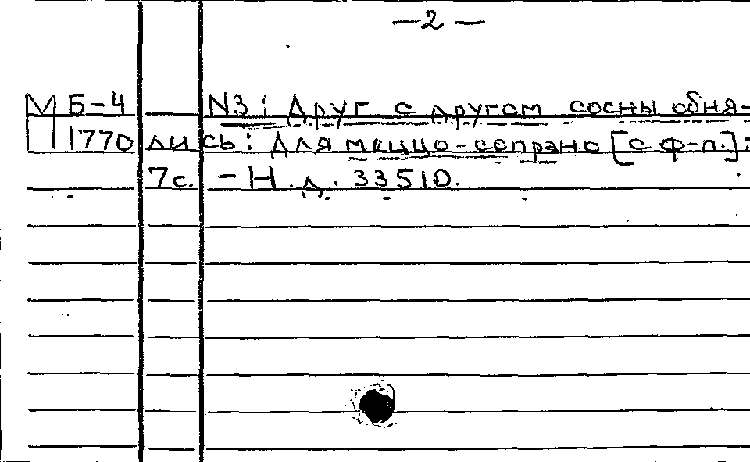 —2—
М Б-4 №3: Друг с другом сосны обня-
1770 лись: Для меццо-сопрано [с ф-п.]:
7с. - Н.д. 33510.